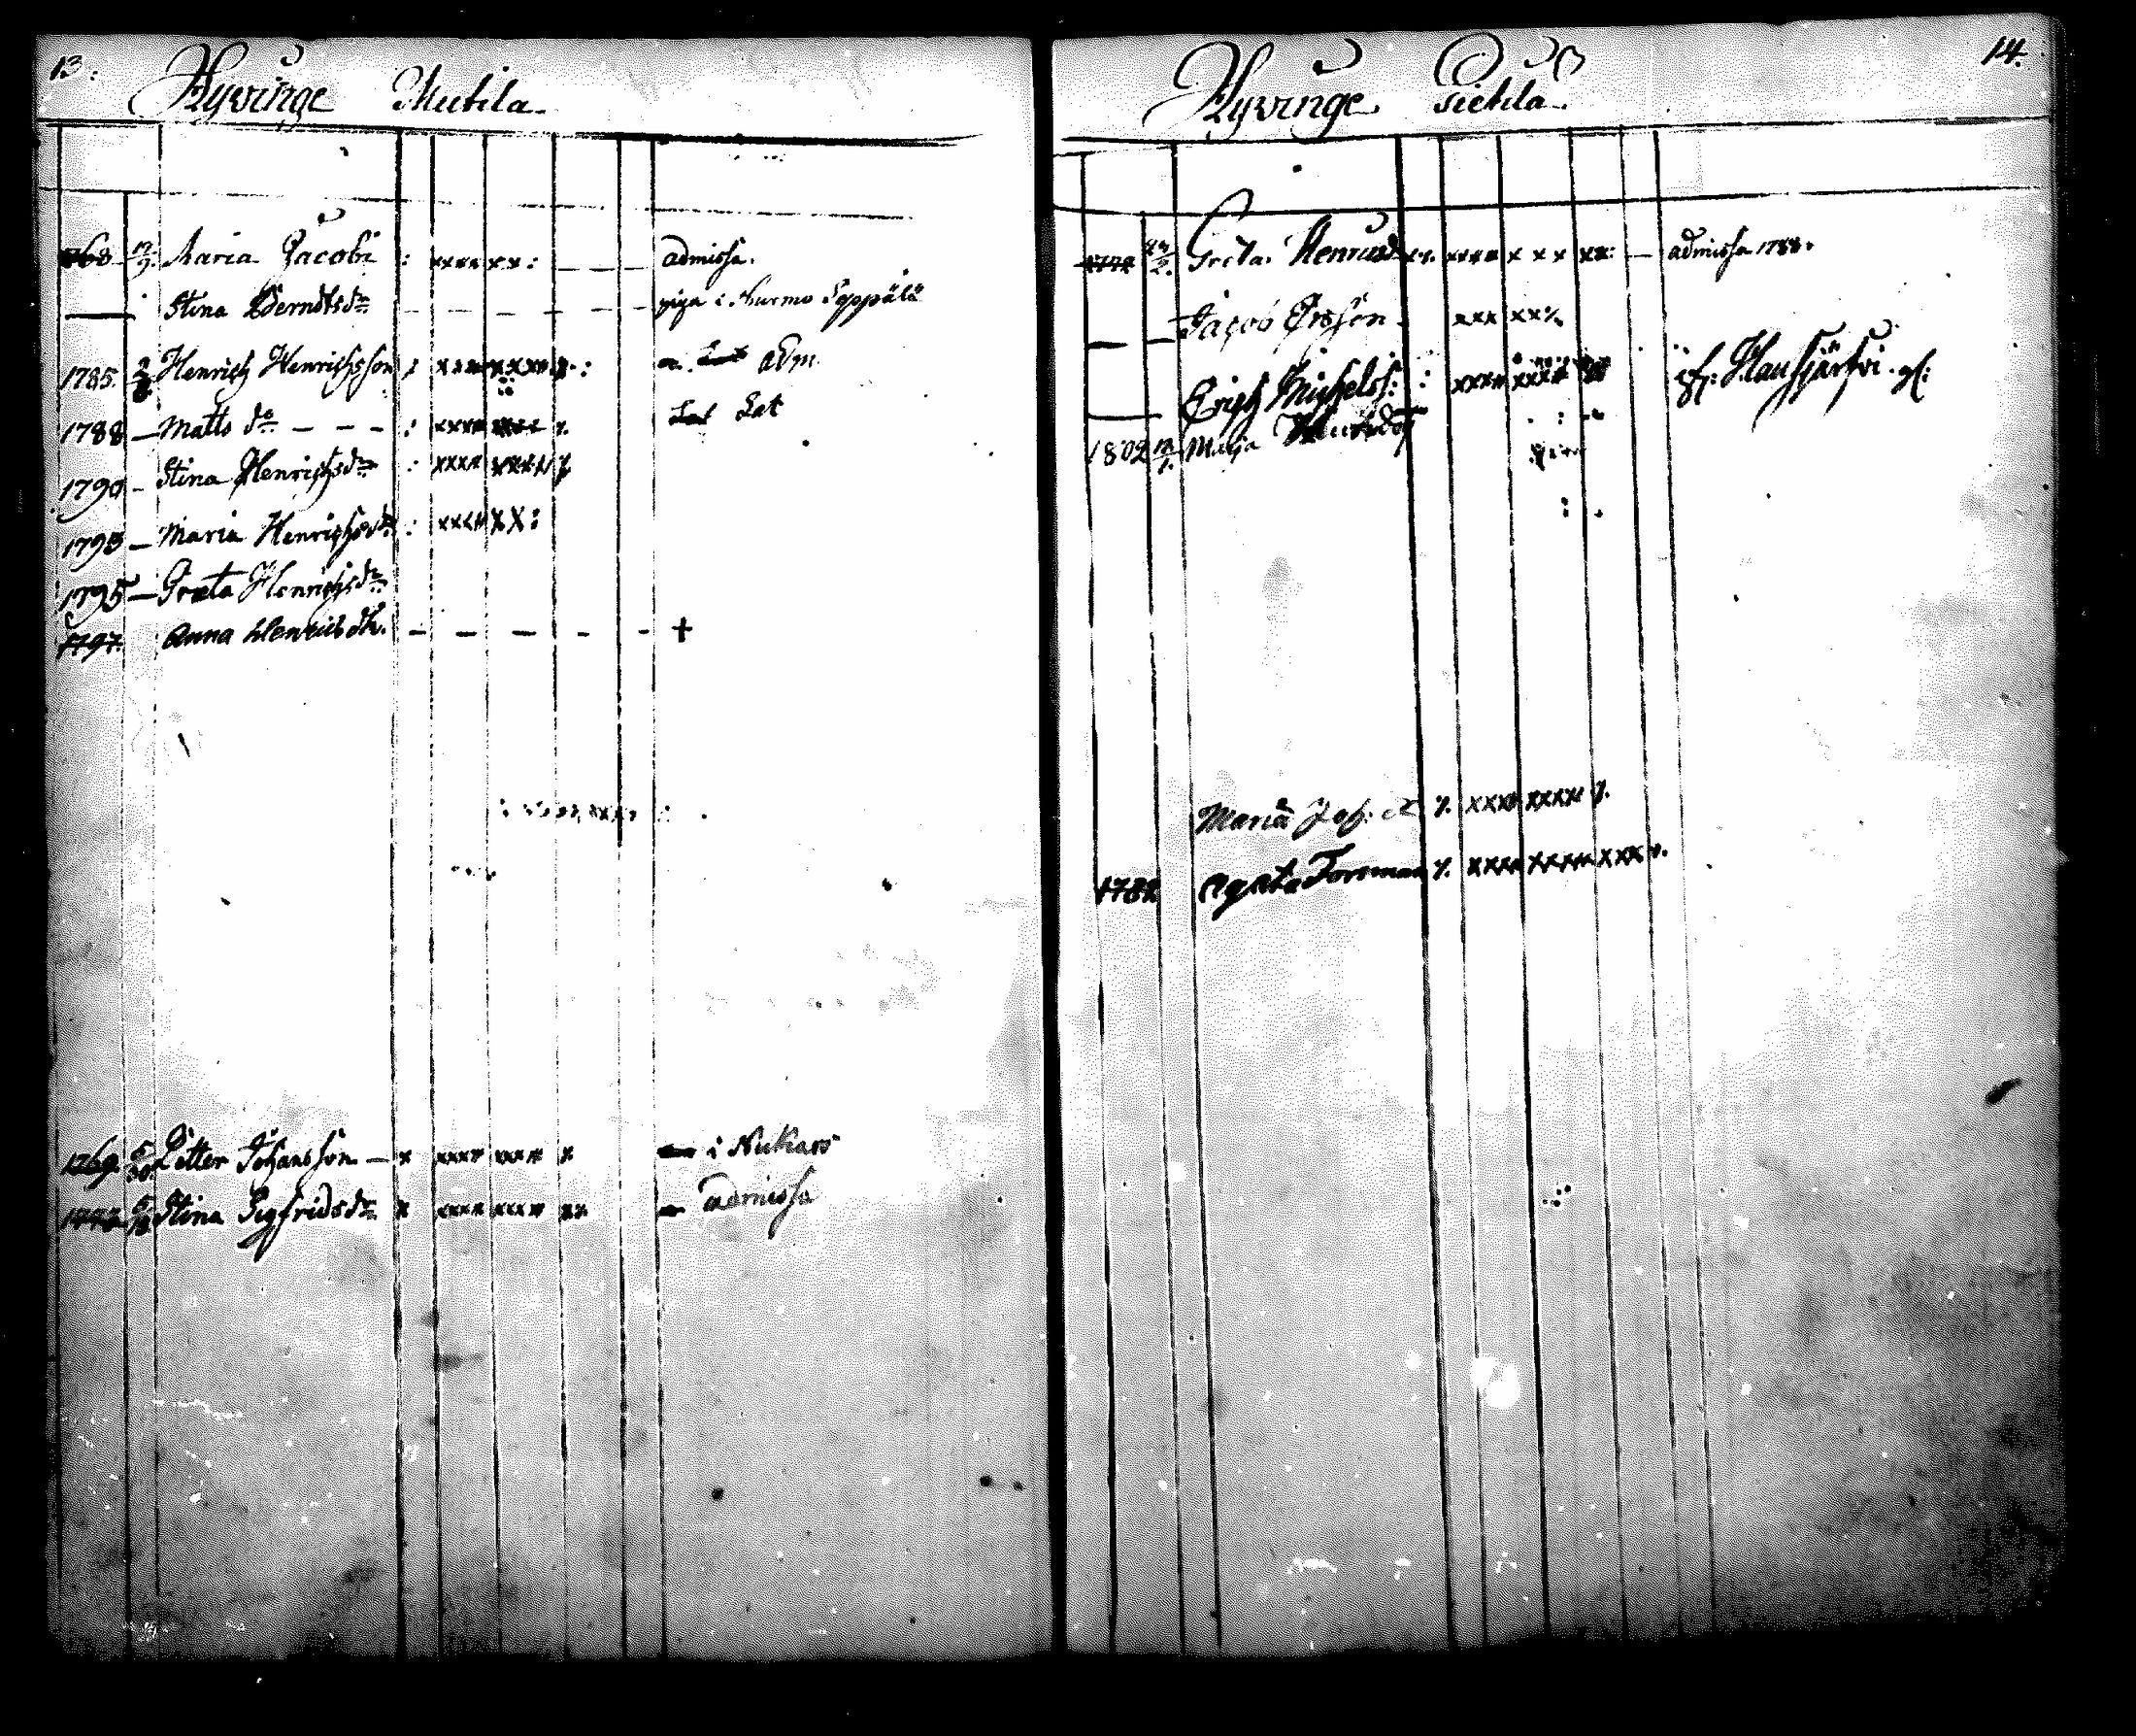 13.
Hyvinge Mutila
1768 Maria Jacobi : xxxx xx : — — — admissa.
Stina Berndtsdr — — — — piga i Nurmo Seppälä
1785. Henrich Henrichsson : xxxx adm.
1788 — Matts do — — — : xxxx Lat
1790 — Stina Henrichsdr : xxxx xxxx
1793 — Maria Henrichsdr : xxxx xx :
1795 — Greta Henrichsdr
1797. Anna Henricsdr. — — — — — +
1769 Petter Johansson — x xxxx xxxx x i Nukars
Stina Sigfridsdr x xxxx xxxx xx admissa
14.
Hyvinge Pietilä
Greta Henricsd xxxx x x x xx: — admissa 1788.
— — Jacob Ersson xxx xx
— Erich Michelss: : xxxx xxxx Hausjärfvi
1802 Maja
Maria Joh: xxxx xxxx
1782 Agata Forsman xxxx xxxx xxx